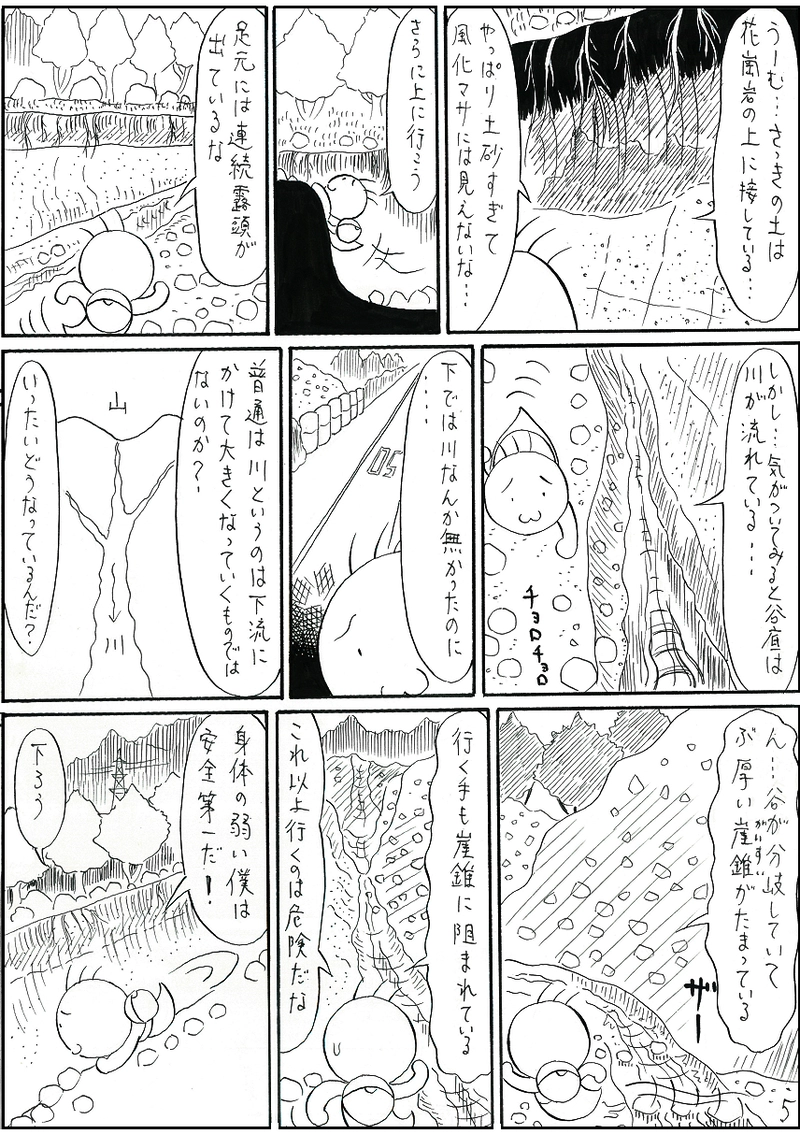 うーむ…さっきの土は
花崗岩の上に接している…
やっぱり土砂すぎて
風化マサには見えないな…
さらに上に行こう
足元には連続露頭が
出ているな
しかし…気がついてみると谷底は
川が流れている…
チョロチョロ
下では川なんか無かったのに
…
50
普通は川というのは下流に
かけて大きくなっていくものでは
ないのか？
山
川
いったいどうなっているんだ？
ん…谷が分岐していて
ぶ厚い崖錐がたまっている
がいすい
ザー
行く手も崖錐に阻まれている
これ以上行くのは危険だな
身体の弱い僕は
安全第一だ！
下ろう
5